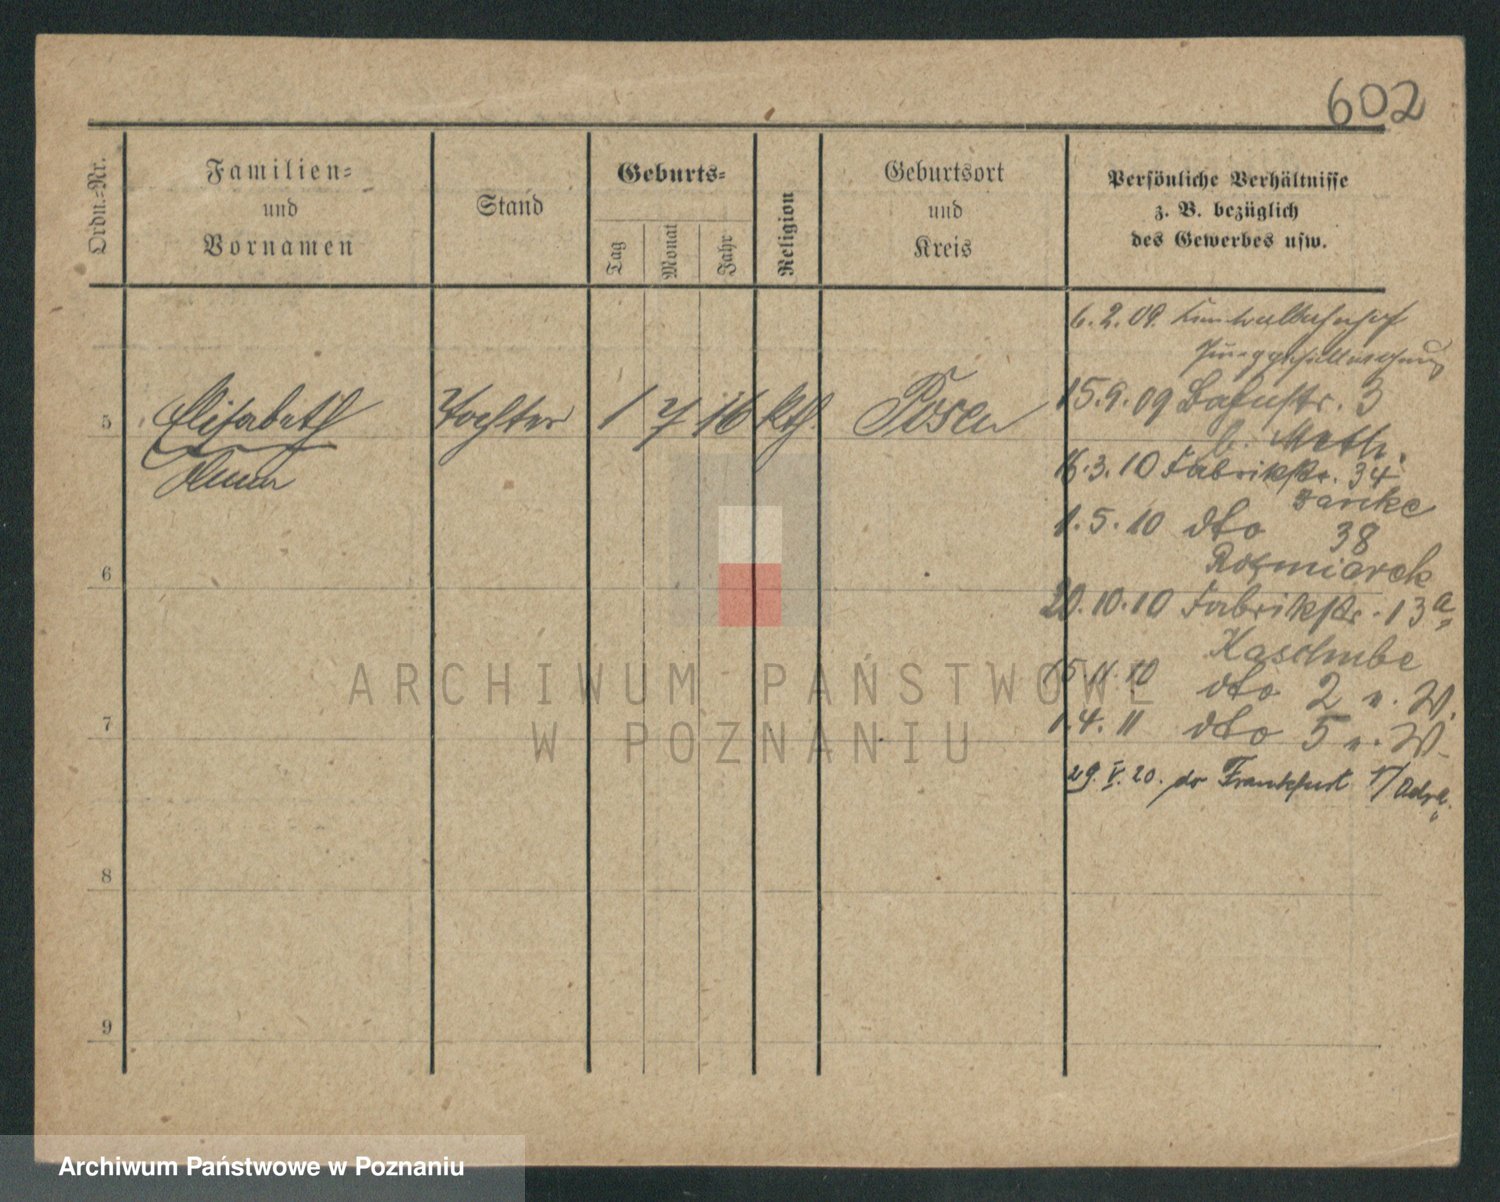 602
Ordn.=Nr.
Familien=
und
Vornamen
Stand
Geburts=
Tag
Monat
Jahr
Religion
Geburtsort
und
Kreis
Persönliche Verhältnisse
z. B. bezüglich
des Gewerbes usw.
6.2.09. Zentralbahnhof
5 Elisabeth Tochter 1 7 16 kth. Posen
Anna
15.9.09 Bahnstr. 3
b. Meth.
16.3.10 Fabrikstr. 34
Jarcke
1.5.10 dto 38
Rozmiarek
20.10.10 Fabrikstr. 13a
Kaschube
15.11.10 dto 2 n. W.
1.4.11 dto 5 n. W.
29.V.20. do Frankfurt
6
7
8
9
ARCHIWUM PAŃSTWOWE
W POZNANIU
Archiwum Państwowe w Poznaniu